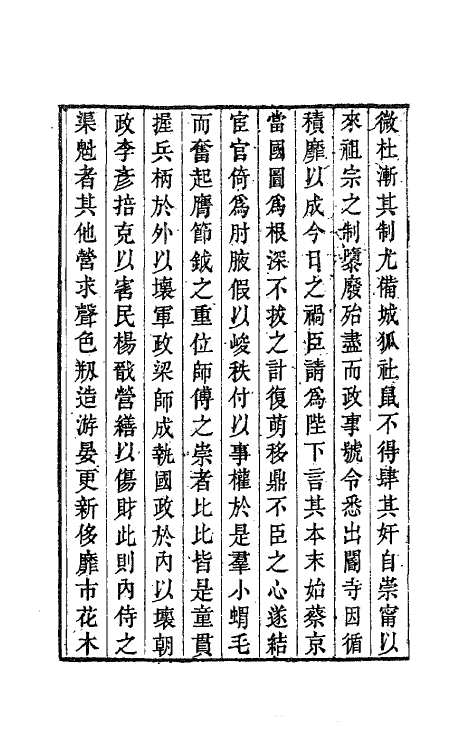 微杜漸其制尤備城狐社鼠不得肆其奸自崇甯以
來祖宗之制隳廢殆盡而政事號令悉出閹寺因循
積靡以成今日之禍臣請為陛下言其本末始蔡京
當國圖為根深不拔之計復萌移鼎不臣之心遂結
宦官倚為肘腋假以峻秩付以事權於是羣小蝟毛
而奮起膺節鉞之重位師傅之崇者比比皆是童貫
握兵柄於外以壞軍政梁師成執國政於內以壞朝
政李彥掊克以害民楊戩營繕以傷財此則內侍之
渠魁者其他營求聲色剏造游晏更新侈靡市花木